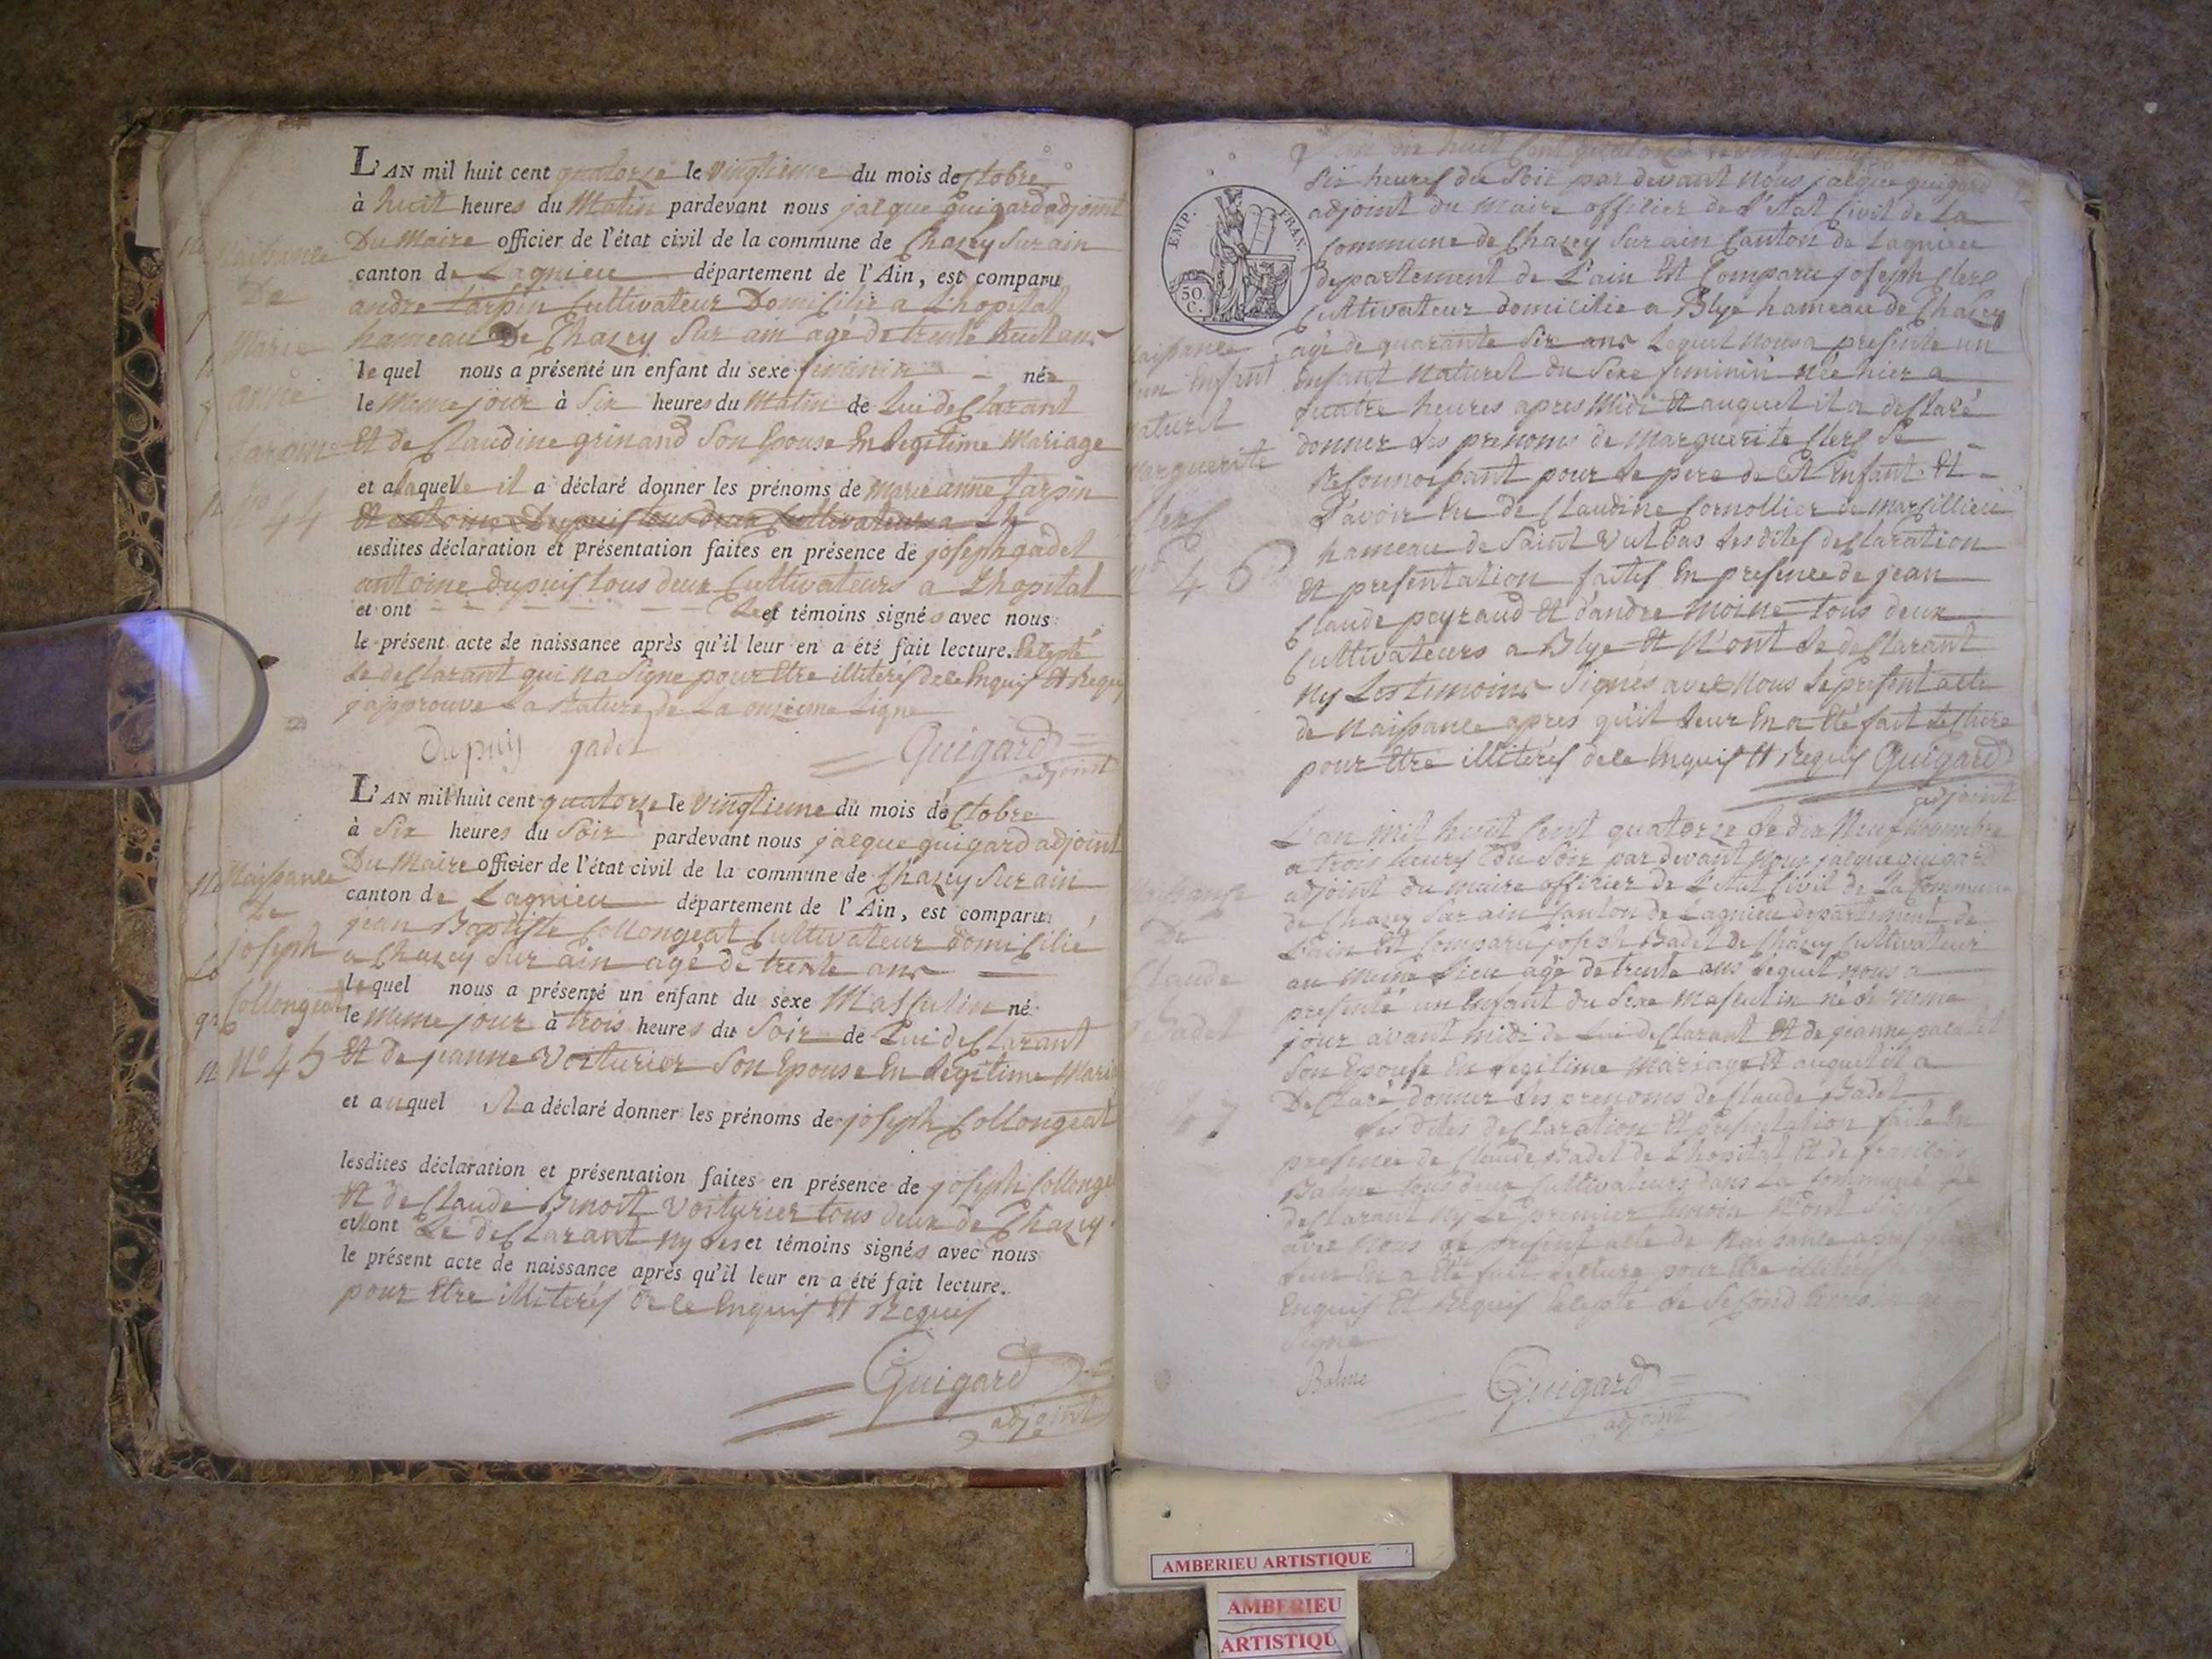 L'AN mil huit cent quatorze le vingtieme du mois doctobre
à huit heures du Matin pardevant nous jacque guigard adjoint
Du Maire officier de l'état civil de la commune de Chazey Sur ain
canton de Lagnieu département de l'Ain, est comparu
andre tarpin Cultivateur Domicilié a L'hopital
hameau De Chazey Sur ain agé de trente huit ans
lequel nous a présenté un enfant du sexe feminin née
le Meme jour à Six heures du Matin de Lui declarant
Et de Claudine grinand Son Epouse En legitime Mariage
et a laquelle il a déclaré donner les prénoms de Marie anne tarpin
Et antoine Dupuis tous deux Cultivateurs a Lh
lesdites déclaration et présentation faites en présence de joseph gadet
antoine dupuis tous deux Cultivateurs a Lhopital
et ont Les et témoins signés avec nous
le présent acte de naissance après qu'il leur en a été fait lecture. Excepté
le declarant qui na Signe pour Etre illiterés de ce Enquis Et Requis
japprouve La Rature de La onzieme Ligne
Dupuy gadet Guigard
adjoint
Naissance
De
Marie
anne
tarpin
no 44
L'AN mil huit cent quatorze le vingtieme du mois doctobre
à Six heures du Soir pardevant nous jacque guigard adjoint
Du Maire officier de l'état civil de la commune de Chazey Sur ain
canton de Lagnieu département de l'Ain, est comparu
jean Baptiste Collongeat Cultivateur domicilié
a Chazey Sur ain agé de trente ans
lequel nous a présenté un enfant du sexe Masculin né
le meme jour à trois heures du Soir de Lui declarant
Et de jeanne Voiturier Son Epouse En legitime Mari
et auquel il a déclaré donner les prénoms de joseph Collongeat
lesdites déclaration et présentation faites en présence de joseph Collonge
Et de Claude Benoit Voiturier tous deux de Chazey
et Nont Le declarant Ny les et témoins signés avec nous
le présent acte de naissance après qu'il leur en a été fait lecture.
pour Etre illiterés de ce Enquis Et Requis
Guigard
adjoint
Naissance
de
joseph
Collongeat
No 45
EMP. FRAN.
50.
C.
L'an mil huit Cent quatorze
Six heures du Soir par devant Nous jacque guigard
adjoint du Maire officier de L'etat Civil de La
Commune de Chazey Sur ain Canton de Lagnieu
departement de L'ain Est Comparu joseph Clerc
Cultivateur domicilié a Blye hameau de Chazey
agé de quarante Six ans Lequel Nous a presenté un
Enfant Naturel du Sexe feminin née hier a
quatre heures apres Midi Et auquel il a declaré
donner Les prenoms de Marguerite Clerc Se
Reconnoissant pour Le pere de Cet Enfant Et
L'avoir Eu de Claudine Cornollier de Marcillieu
hameau de Saint Vulbas Les dites declaration
Et presentation faites En presence de jean
Claude peyraud Et d'andre Moine tous deux
Cultivateurs a Blye Et N'ont Le declarant
Ny Les temoins Signés avec Nous Le present acte
de Naissance apres qu'il Leur En a Eté fait Lecture
pour Etre illiterés de ce Enquis Et Requis Guigard
adjoint
aissance
un Enfant
aturel
arguerite
Clerc
no 46
L'an Mil huit Cent quatorze Le dix Neuf Novembre
a trois heures du Soir par devant Nous jacque guigard
adjoint du Maire officier de L'etat Civil de La Commune
de Chazey Sur ain Canton de Lagnieu departement de
L'ain Est Comparu joseph Gadet de Chazey Cultivateur
au Meme Lieu agé de trente ans Lequel Nous a
presenté un Enfant du Sexe Masculin né Le Meme
jour avant midi de Lui declarant Et de jeanne
Son Epouse En legitime Mariage Et auquel il a
Declaré donner Les prenoms de Claude Gadet
Les dites declaration Et presentation faite En
presence de Claude Gadet de L'hopital Et de francois
Balme tous deux Cultivateurs dans La Commune Le
declarant Ny Le premier temoin N'ont Signés
avec Nous Le present acte de Naissance apres
Leur En a Eté fait Lecture pour Etre illiterés
Enquis Et Requis Excepté Le Second temoin
Signe
Balme Guigard
adjoint
De
Claude
Gadet
47
AMBERIEU ARTISTIQUE
AMBERIEU
ARTISTIQU